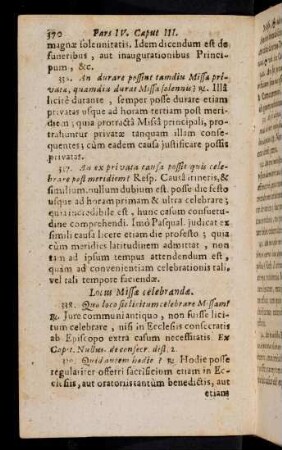 370 Pars IV. Caput III.
magnæ solemnitatis. Idem dicendum est de
funeribus, aut inaugurationibus Princi-
pum, &c.
An durare possint tamdiu Missæ pri-
vatæ, quamdiu durat Missa solennis? ℞. Illâ
licitè durante, semper posse durare etiam
privatas usque ad horam tertiam post meri-
diem; quia protractâ Missâ principali, pro-
trahuntur privatæ tanquam illam conse-
quentes; cùm eadem causa justificare possit
privatas.
317. An ex privata causa possit quis cele-
brare post meridiem? Resp. Causâ itineris, &
similium, nullum dubium est, posse die festo
usque ad horam primam & ultra celebrare;
quia incredibile est, hunc casum consuetu-
dine comprehendi. Imò Pasqual. judicat ex
simili causa licere etiam die profesto; quia
cùm meridies latitudinem admittat, non
tam ad ipsum tempus attendendum est,
quàm ad convenientiam celebrationis tali,
vel tali tempore faciendæ.
Locus Missæ celebrandæ.
318. Quo loco sit licitum celebrare Missam?
℞. Jure communi antiquo, non fuisse lici-
tum celebrare, nisi in Ecclesiis consecratis
ab Episcopo extra casum necessitatis. Ex
Capit. Nullus. de consecr. dist. 1.
Quid autem hodie? ℞. Hodie posse
regulariter offerri sacrificium etiam in Ec-
clesiis, aut oratoriis tantùm benedictis, aut
etiam